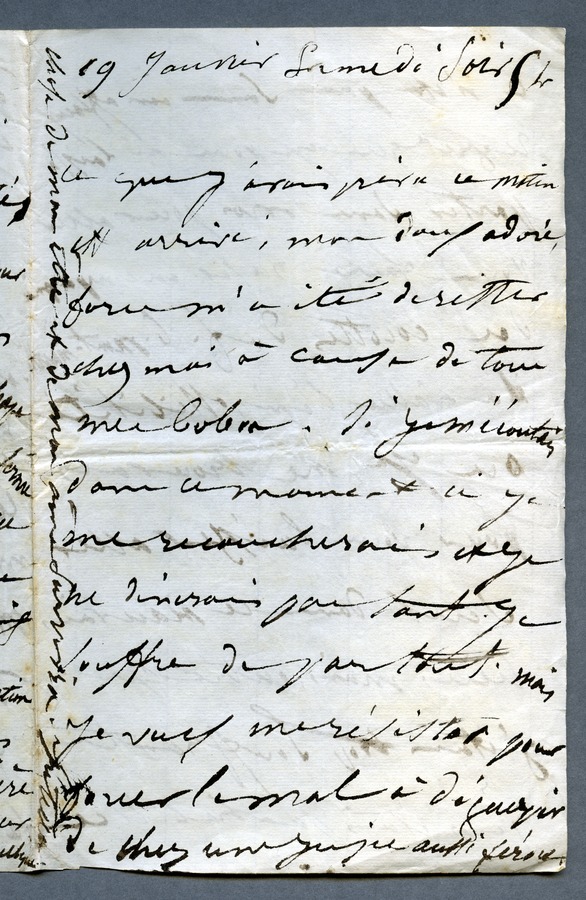 19 Janvier Samedi Soir 5h
Ce que j'avais prévu ce matin
est arrivé, mon doux adoré,
force m'a été de rester
chez moi à cause de tous
mes bobos. Si je m'écoutais
dans ce moment-ci je
me recoucherais et je
ne dinerais pas tant je
souffre de partout mais
je veux me résister pour
forcer le mal à déguerpir
de chez une Juju aussi féroce
chose de mon cœur et de mon âme